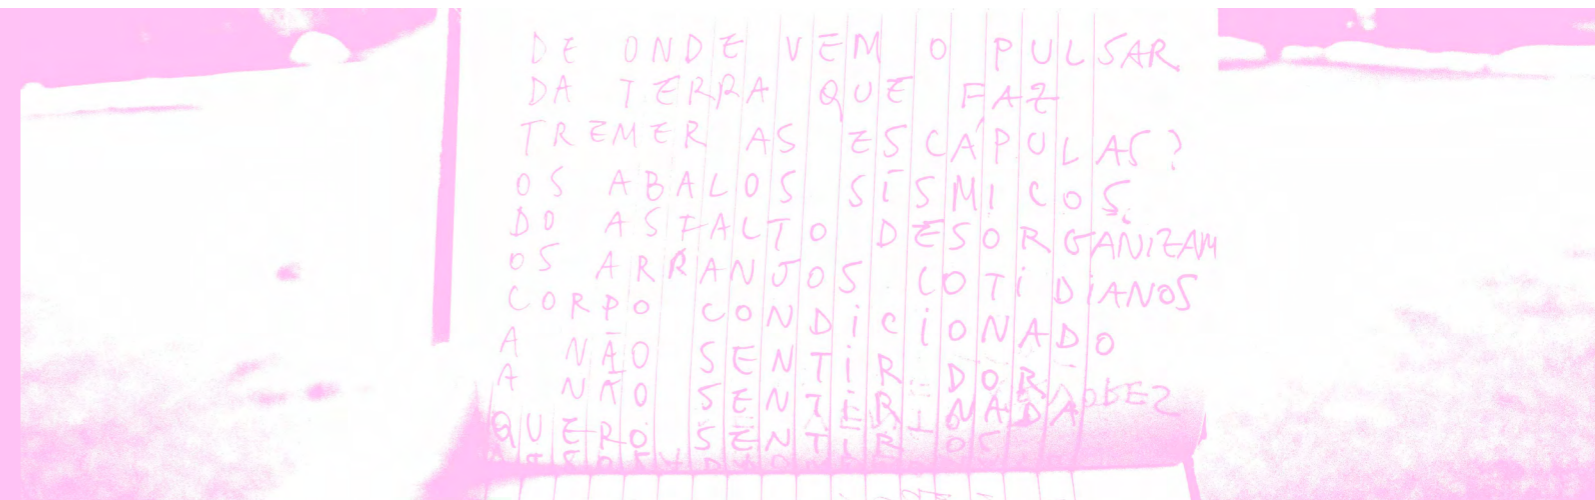 DE ONDE VEM O PULSAR
DA TERRA QUE FAZ
TREMER AS ESCÁPULAS?
OS ABALOS SÍSMICOS
DO ASFALTO DESORGANIZAM
OS ARRANJOS COTIDIANOS
CORPO CONDICIONADO
A NÃO SENTIR DOR
A NÃO SENTIR NADA
QUERO SENTIR OS